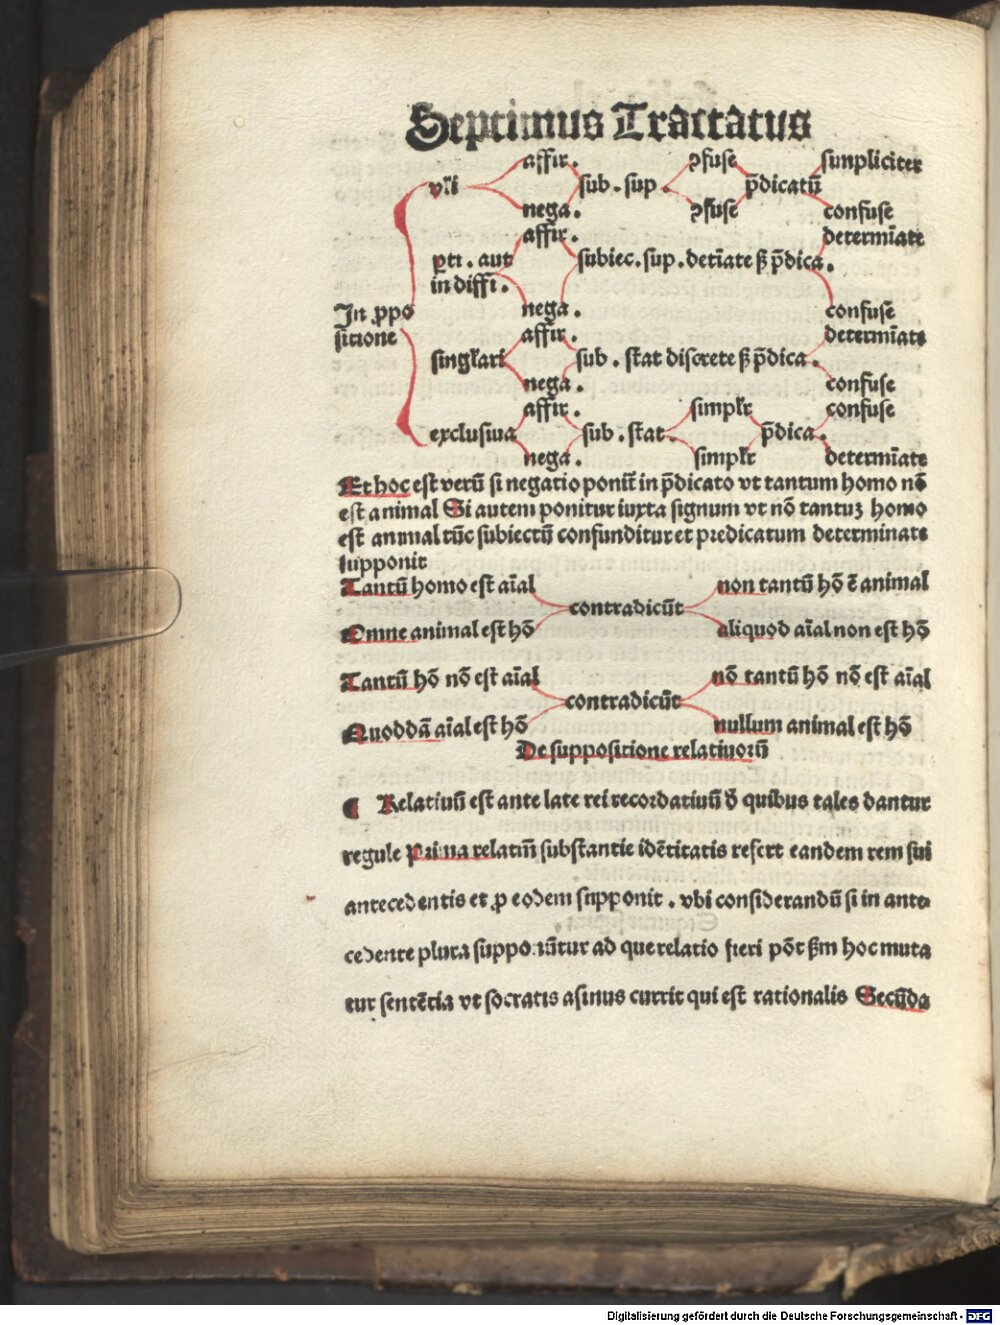 Septimus Tractatus
affir. ↄfuse simpliciter
vľi sub. sup. p̄dicatū
nega. ↄfuse confuse
affir. determīate
ꝑti. aut subiec. sup. detīate ꝭ p̄dica.
indiffi.
In ꝓpo nega. confuse
sitione affir. determīate
singľari sub. stat discrete ꝭ p̄dica.
nega. confuse
affir. simpľr confuse
exclusiua sub. stat. p̄dica.
nega. simpľr determīate
Et hoc est verū si negatio ponit̄ in p̄dicato vt tantum homo nō
est animal Si autem ponitur iuxta signum vt nō tantuꝫ homo
est animal tūc subiectū confunditur et predicatum determinate
supponit
Tantū homo est aīal non tantū hō ē animal
contradicūt
Omne animal est hō aliquod aīal non est hō
Tantū hō nō est aīal nō tantū hō nō est aīal
contradicūt
Quoddā aīal est hō nullum animal est hō
De suppositione relatiuorū
¶ Relatiuū est ante late rei recordatiuū ð quibus tales dantur
regule Prima relatiū substantie idētitatis refert eandem rem sui
antecedentis et ꝓ eodem supponit. vbi considerandū si in ante
cedente plura supponūtur ad que relatio fieri pōt ẜm hoc muta
tur sentētia vt socratis asinus currit qui est rationalis Secūda
Digitalisierung gefördert durch die Deutsche Forschungsgemeinschaft - DFG